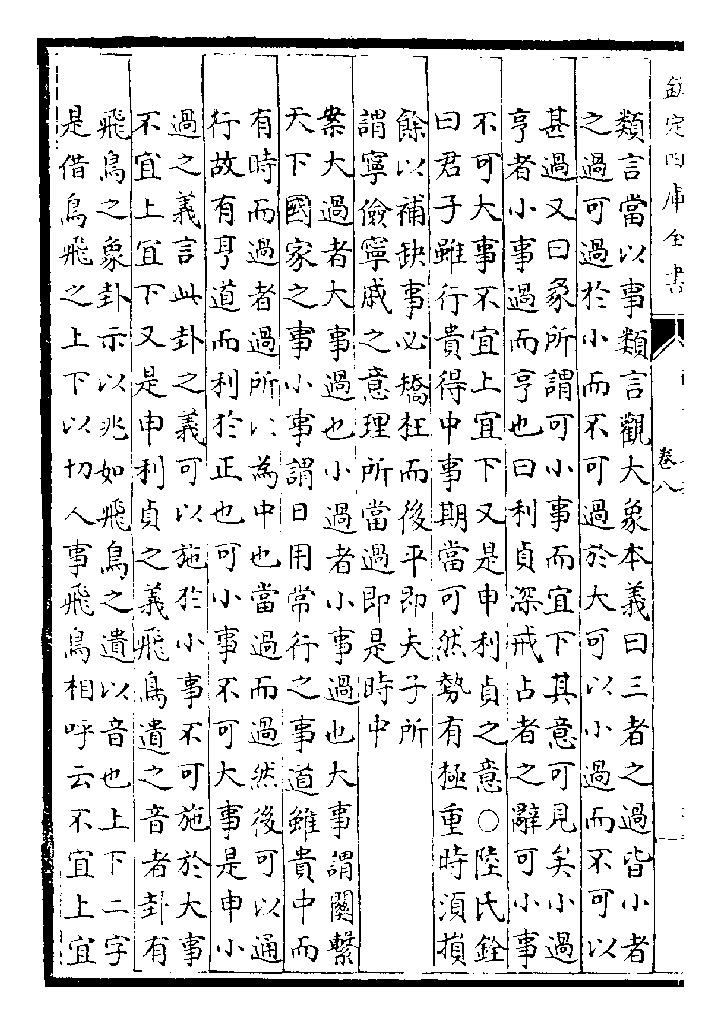 欽定四庫全書
卷八
類言當以事類言觀大象本義曰三者之過皆小者
之過可過於小而不可過於大可以小過而不可以
甚過又曰彖所謂可小事而宜下其意可見矣小過
亨者小事過而亨也曰利貞深戒占者之辭可小事
不可大事不宜上宜下又是申利貞之意○陸氏銓
曰君子雖行貴得中事期當可然勢有極重時須損
餘以補缺事必矯枉而後平即夫子所
謂寧儉寧戚之意理所當過即是時中
案大過者大事過也小過者小事過也大事謂關繫
天下國家之事小事謂日用常行之事道雖貴中而
有時而過者過所以為中也當過而過然後可以通
行故有亨道而利於正也可小事不可大事是申小
過之義言此卦之義可以施於小事不可施於大事
不宜上宜下又是申利貞之義飛鳥遺之音者卦有
飛鳥之象卦示以兆如飛鳥之遺以音也上下二字
是借鳥飛之上下以切人事飛鳥相呼云不宜上宜